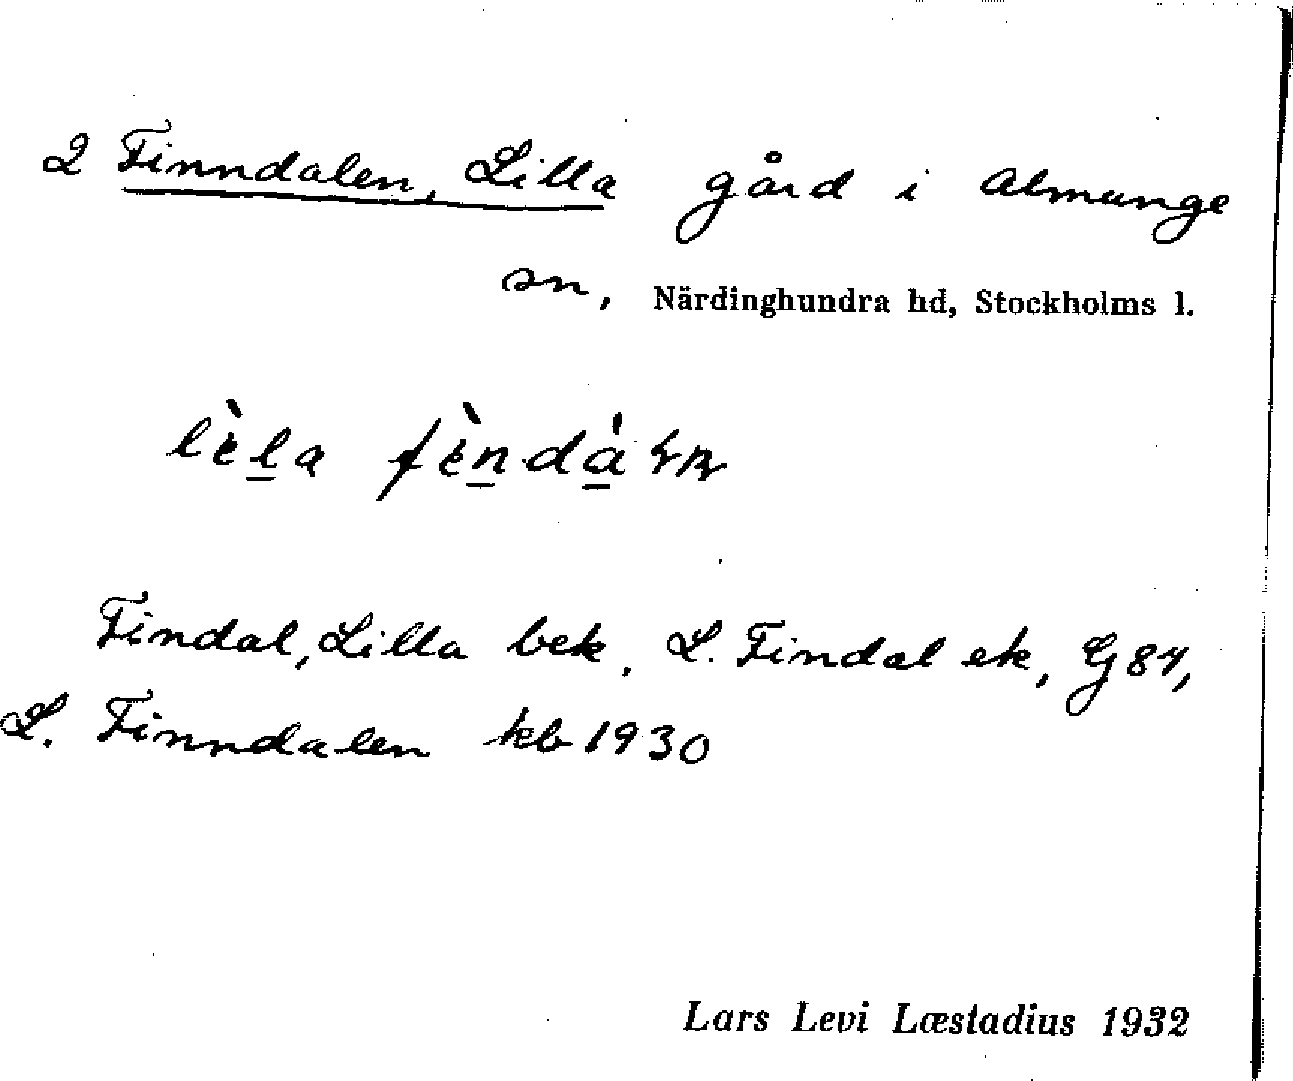 2 Finndalen, Lilla gård i Almunge
sn, Närdinghundra hd, Stockholms l.
Findal, Lilla bek, L. Findal ek, G 84,
L. Finndalen kb 1930
Lars Levi Læstadius 1932